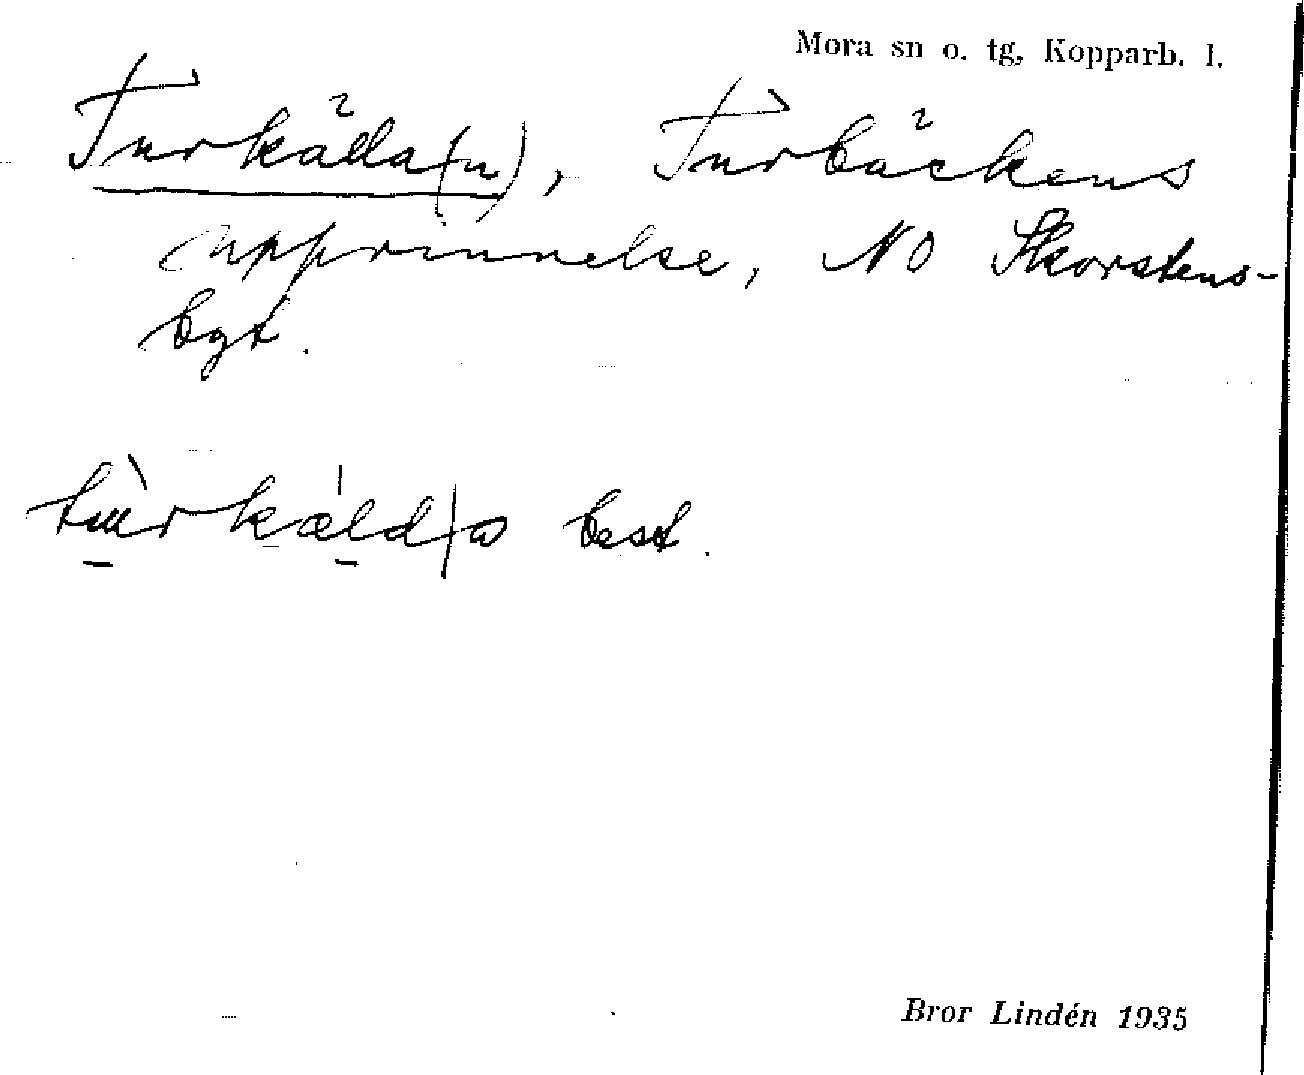 Mora sn o. tg, Kopparb. l.
Turkälla(n), Turbäckens
upprinnelse, NO Skorstens-
bgt.
tùrkæld|a best.
Bror Lindén 1935